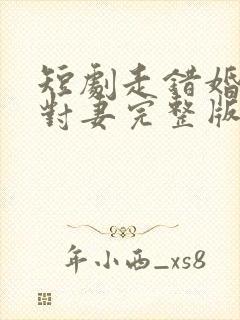 短劇走錯婚
對妻完整版
年小西_xs8